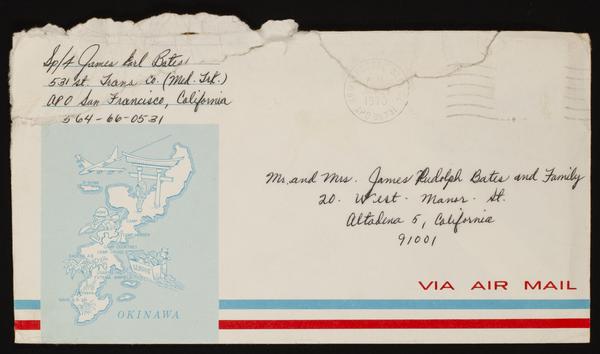 Sp/4 James Earl Bates
531st Trans Co. (Med. Trk.)
APO San Francisco, California
564-66-0531
1970
Mr. and Mrs. James Rudolph Bates and Family
20. West. Manor. St.
Altadena 5, California
91001
VIA AIR MAIL
OKINAWA